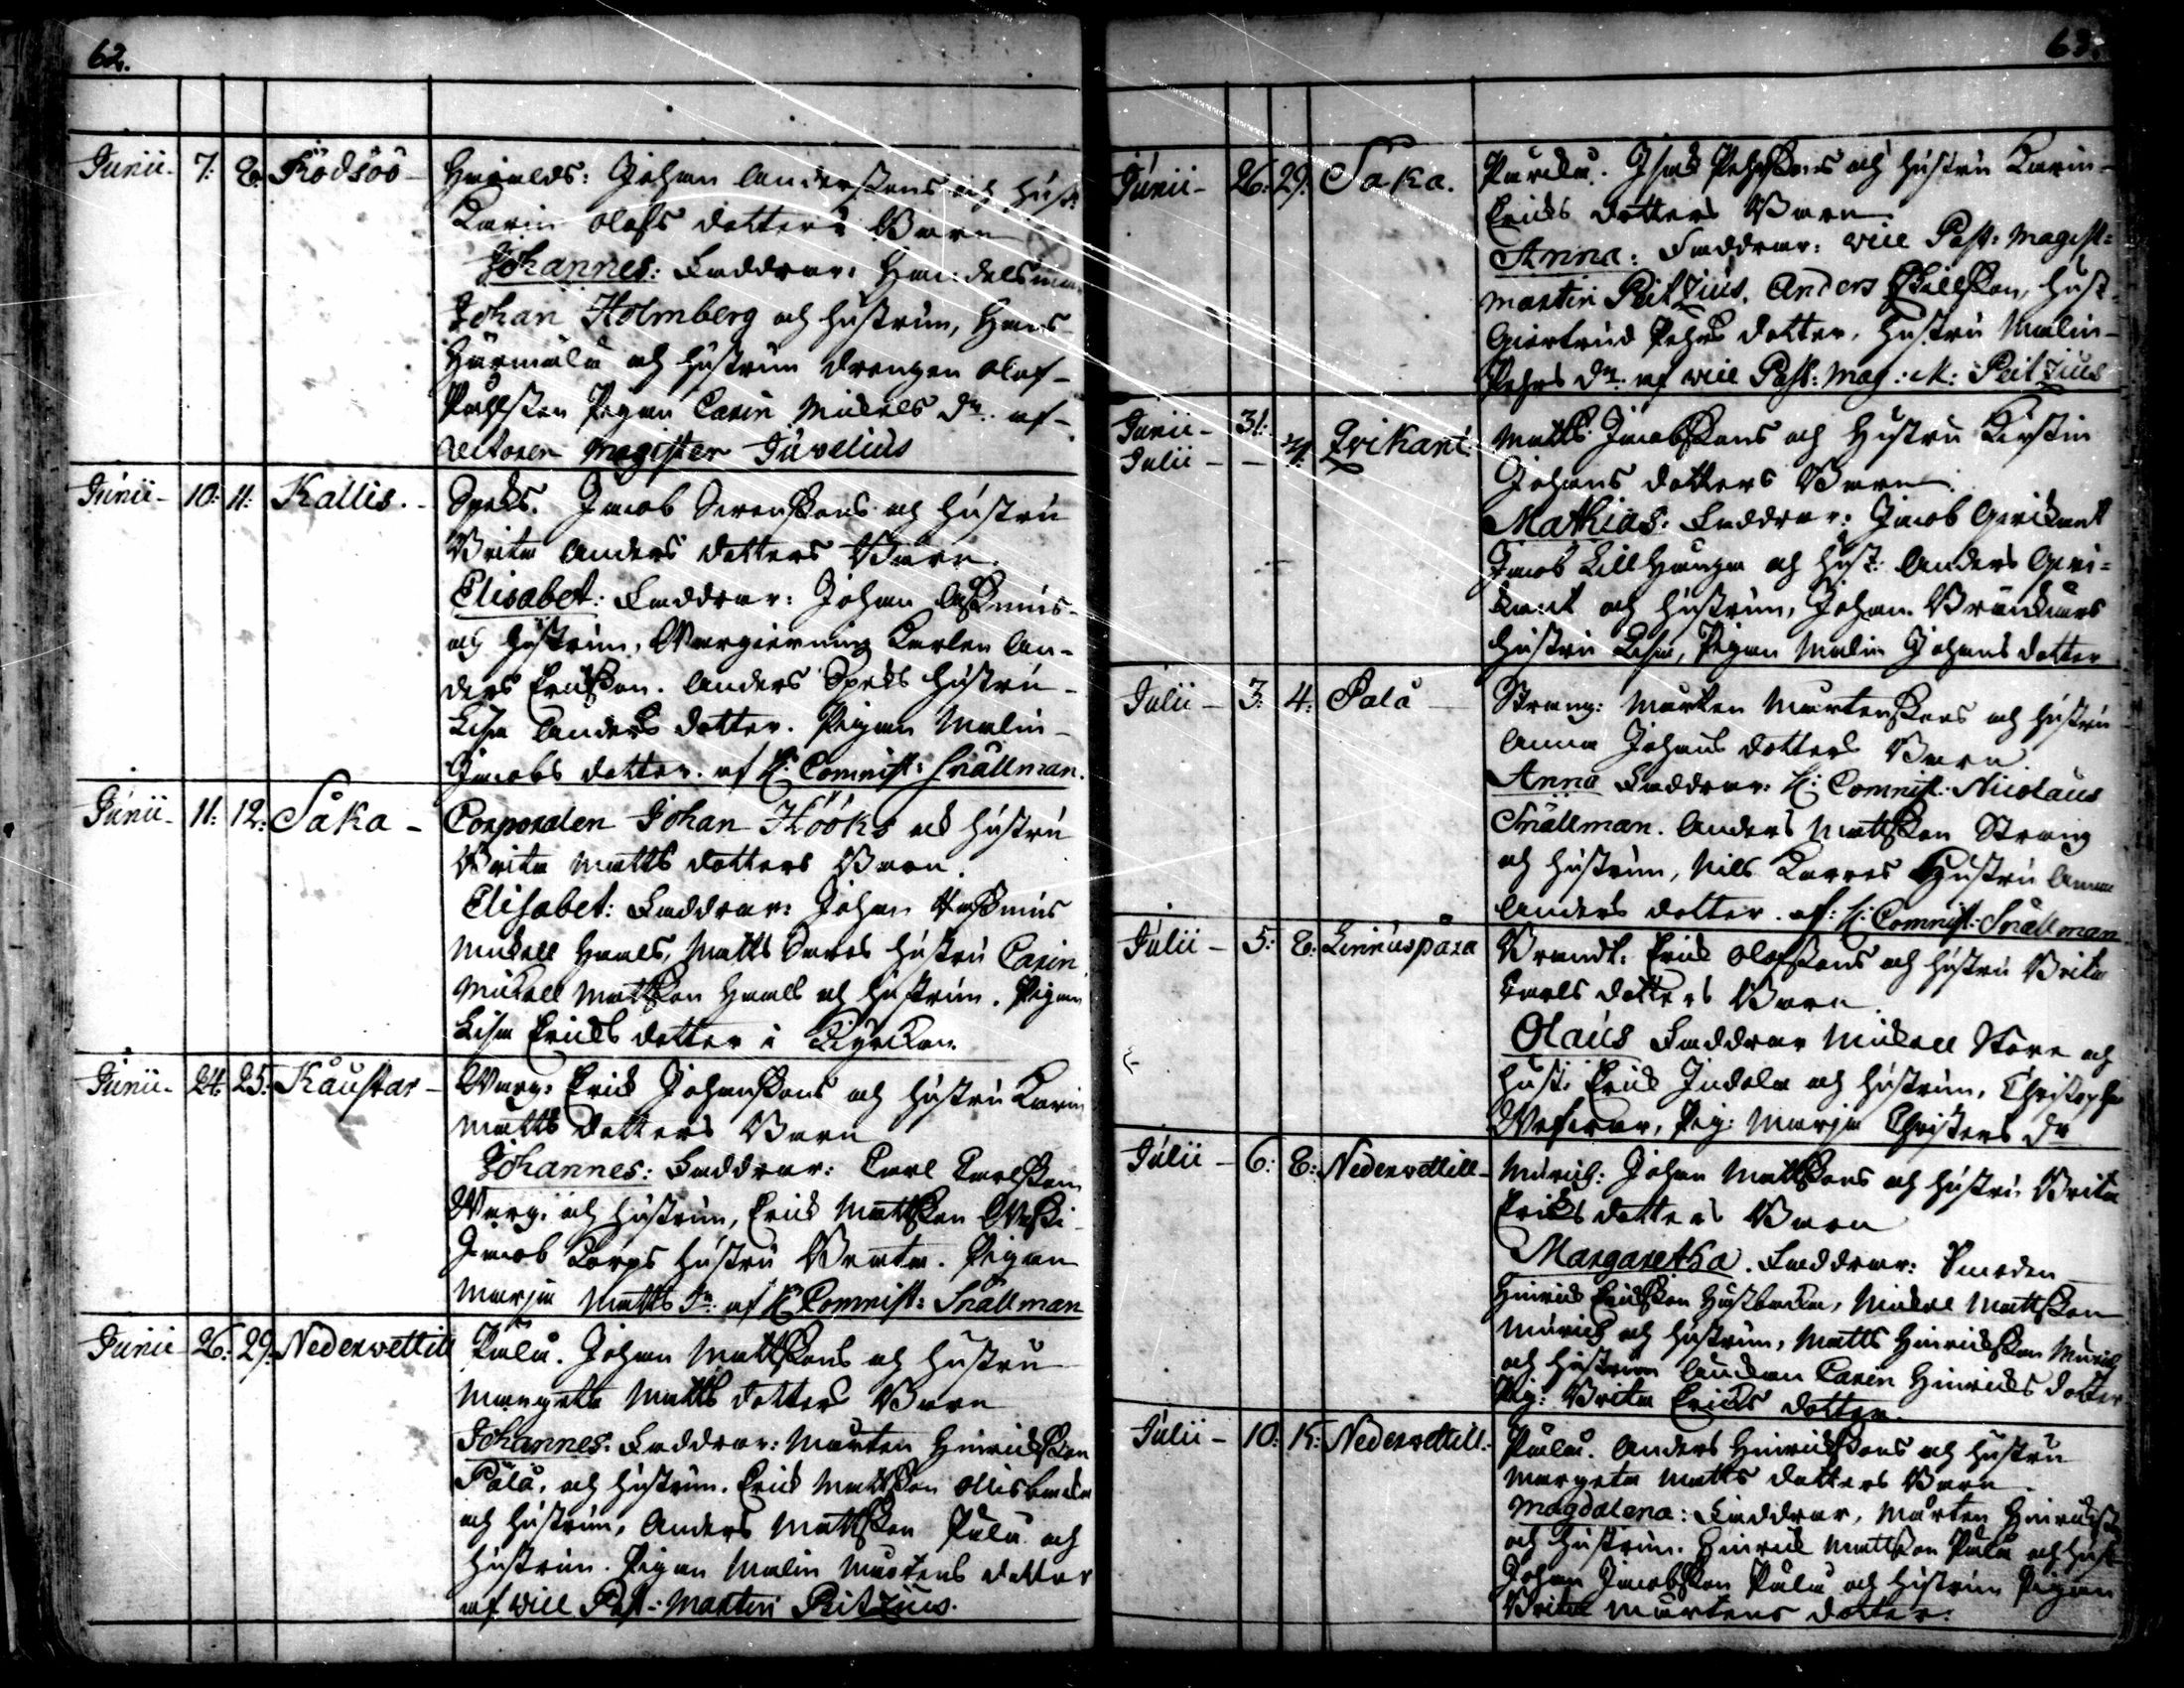 62.
Junii 7: 8: Rödsöö
Johan Anderssons och Hust:
Karin Olofs dotters Barn
Johannes: Faddrar: Handelsman
Johan Holmberg och Hustrun, Hans
och Hustrun Drengen Olof
Påhlsson Pigan Carin Mickels Dr. af
Rectoren Magister Juvelius
Junii 10: 11: Kallis.
Speks. Jacob Svenssons och Hustru
Brita Anders dotters Barn.
Elisabet: Faddrar: Johan
och Hustrun, Karlen An-
ders Ericksson. Anders Speks Hustru
Lisa Anders dotter. Pigan Malin
Jacobs dotter. af H: Comnist: Snällman.
Junii 11: 12: Såka
Corporalen Johan Hööks och Hustru
Brita Matts dotters Barn.
Elisabet: Faddrar: Johan
Mickell Haals, Matts Hustru Carin
Mickell Mattsson Haals och Hustrun. Pigan
Lisa Ericks dotter i Kyrckan.
Junii 24: 25: Kaustar
Warg: Erick Johanssons och Hustru Karin
Matts dotters Barn
Johannes: Faddrar: Carl Carlsson
Warg. och Hustrun, Erick Mattsson
Jacob Corps Hustru Beata. Pigan
Marja Matts Dr. af H: Comnist: Snällman
Junii 26: 29: Nederwettill
Pulu. Johan Mattssons och Hustru
Margeta Matts dotters Barn
Johannes: Faddrar: Mårten Hinricksson
Pålå, och Hustrun. Erick Mattsson Ollisbacka
och Hustrun, Anders Mattsson Pulu och
Hustrun. Pigan Malin Mårtens dotter
af vice Past: Martin Peitzius.
63.
Junii 26: 29: Såka.
Isak Pehrssons och Hustru Karin
Ericks dotters Barn
Anna: Faddrar: vice Past: Magist:
Martin Peitzius, Anders Hust.
Giertrud Pehrs dotter, Hustru Malin
Pehrs Dr. af vice Past: Mag: M: Peitzius
Junii 31:
Julii
Matts Jacobssons och Hustru Kirstin
Johans dotters Barn.
Mathias: Faddrar: Jacob
Jacob Lillhauga och Hust: Anders
och Hustrun, Johan
Hustru Lisa, Pigan Malin Johans dotter
Julii 3: 4: Palå
Strang: Mårten Mårtenssons och Hustru
Anna Johans dotters Barn
Anna Faddrar: H: Comnist: Nicolaus
Snällman. Anders Mattsson Strang
och Hustrun, Nils Hustru Anna
Anders dotter. af: H: Comnist: Snällman
Julii 5: 8: Linnuspära
Brandt: Erick Olofssons och Hustru Brita
Carls dotters Barn.
Olaus Faddrar Mickell Store och
Hust: Erick Indola och Hustrun, Christopher
Pig: Marja Christers Dr
Julii 6: 8: Nederwettill
Murick: Johan Mattssons och Hustru Brita
Ericks dotters Barn
Margaretha. Faddrar: Smeden
Hinrick Ericksson Hästbacka, Mickel Mattsson
Murick och Hustrun, Matts Hinricksson Murick
och Hustrun Carin Hinricks dotter
Pig: Brita Ericks dotter.
Julii 10: Nederwettill.
Pulu. Anders Hinrickssons och Hustru
Margeta Matts dotters Barn.
Magdalena: Faddrar, Mårten Hinricksson
och Hustrun. Hinrick Mattsson Pulu och Hust
Johan Jacobsson Pulu och Hustrun Pigan
Brita Mårtens dotter.